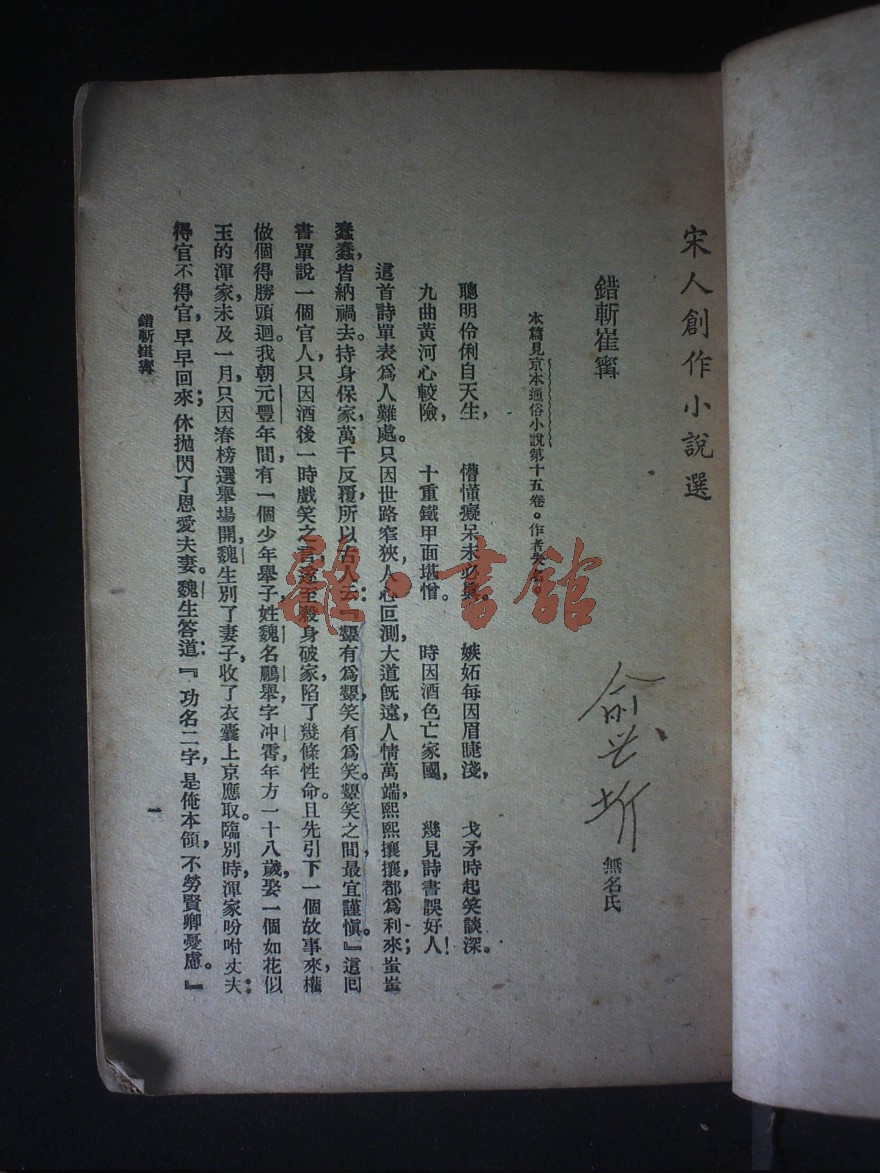 宋人創作小說選
錯斬崔寧
無名氏
本篇見京本通俗小說第十五卷。作者失名。
聰明伶俐自天生,　懵懂癡呆未必眞。　嫉妬每因眉睫淺,　戈矛時起笑談深。
九曲黃河心較險,　十重鐵甲面堪憎。　時因酒色亡家國,　幾見詩書誤好人!
這首詩單表爲人難處。只因世路窄狹,人心叵測,大道旣遠,人情萬端,熙熙攘攘,都爲利來;蚩蚩
蠢蠢,皆納禍去。持身保家,萬千反覆。所以古人云:『顰有爲顰,笑有爲笑。顰笑之間,最宜謹慎。』這回
書單說一個官人,只因酒後一時戲笑之言,遂至殺身破家,陷了幾條性命。且先引下一個故事來,權
做個得勝頭迴。我朝元豐年間,有一個少年舉子,姓魏名鵬舉,字冲霄,年方一十八歲,娶一個如花似
玉的渾家。未及一月,只因春榜選舉場開,魏生別了妻子,收了衣囊,上京應取。臨別時,渾家吩咐丈夫:
得官不得官,早早回來;休抛閃了恩愛夫妻。魏生答道:『功名二字,是俺本領,不勞賢卿憂慮。』
錯斬崔寧
一
雜·書館